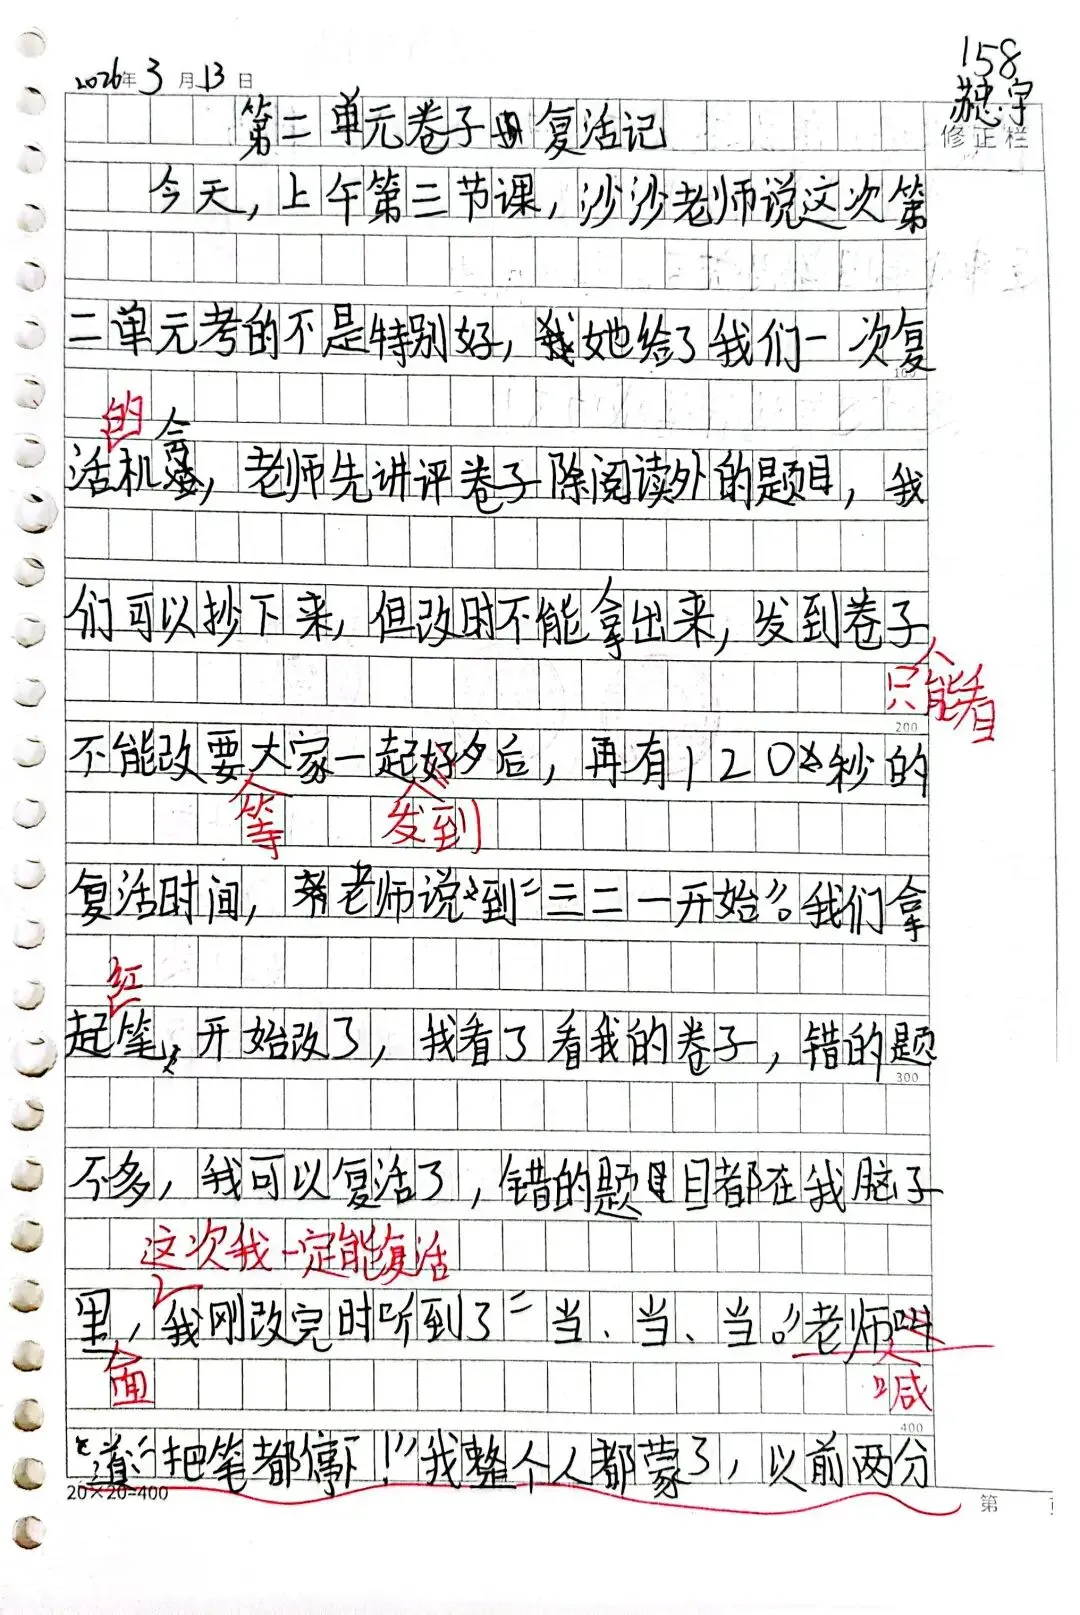 158
2026年3月13日
苏忠宇
修正栏
第二单元卷子复活记
今天，上午第三节课，沙沙老师说这次第
二单元考的不是特别好，她给了我们一次复
100
的
活机会，老师先讲评卷子除阅读外的题目，我
们可以抄下来，但改时不能拿出来，发到卷子
只能看
200
不能改要大家一起好后，再有120秒的
等 发到
复活时间，老师说到“三二一开始”。我们拿
红
起笔，开始改了，我看了看我的卷子，错的题
300
不多，我可以复活了，错的题目都在我脑子
这次我一定能复活
里，我刚改完时听到了“当、当、当。”老师叫
面 喊
400
道“把笔都停下！”我整个人都蒙了，以前两分
20×20=400
第